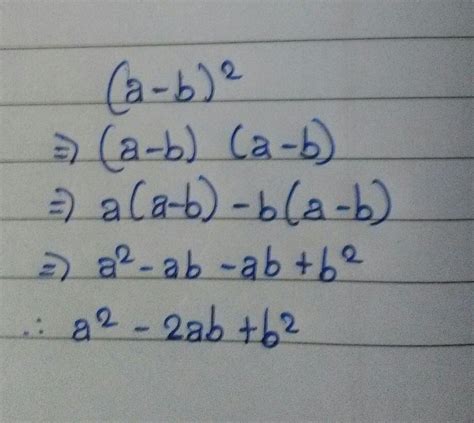 (a-b)²
⇒ (a-b) (a-b)
⇒ a(a-b) -b(a-b)
⇒ a² - ab - ab + b²
∴ a² - 2ab + b²